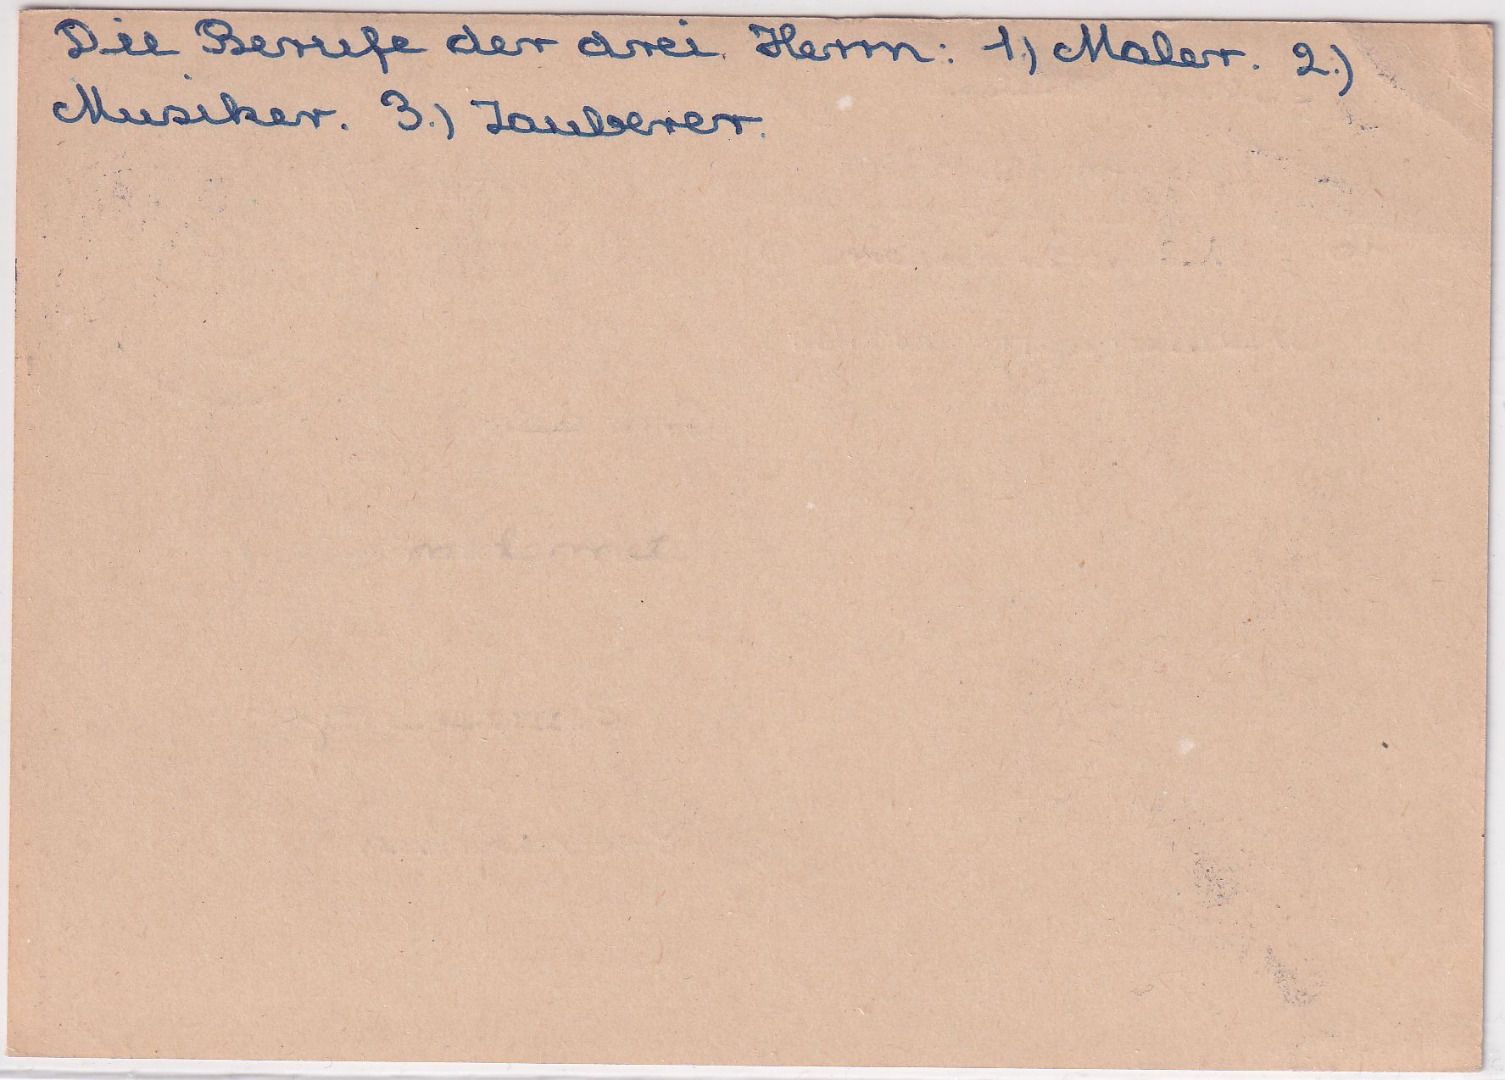 Die Berufe der drei Herrn: 1.) Maler. 2.)
Musiker. 3.) Zauberer.